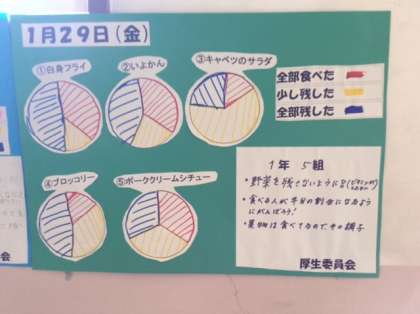 1月29日(金)
①白身フライ
②いよかん
③キャベツのサラダ
全部食べた
少し残した
全部残した
④ブロッコリー
⑤ポーククリームシチュー
1年 5組
・野菜を残さないように
・食べる人が半分の割合になるよう
にがんばろう!
・果物は食べてるのでその調子
厚生委員会